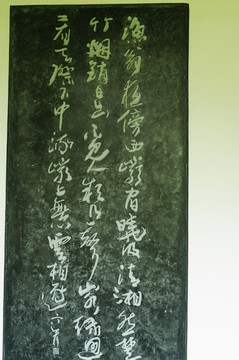 漁翁夜傍西巖宿曉汲清湘燃楚
竹烟銷日出不見人欸乃一聲山水綠迴
看天際下中流巖上無心雲相逐